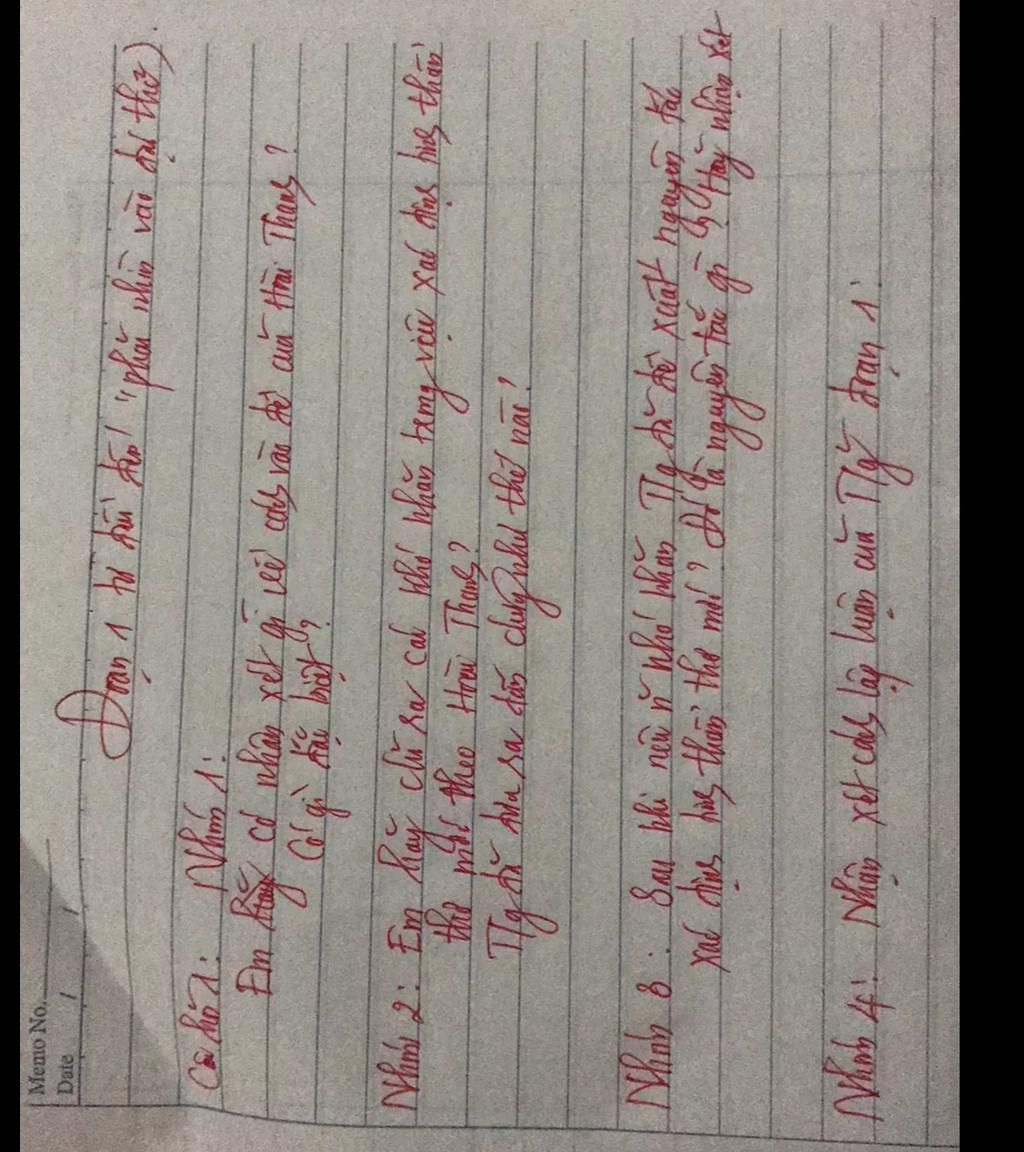 Memo No.
Date / /
Đoạn 1 từ đầu đến "phải nhìn vào đại thể).
Câu hỏi 1: Nhóm 1:
Em hãy có nhận xét gì về cách vào đề của Hoài Thanh?
Có gì đặc biệt?
Nhóm 2: Em hãy chỉ ra cái khó khăn trong việc xác định tinh thần
thơ mới theo Hoài Thanh?
Tg đã đưa ra dẫn chứng như thế nào?
Nhóm 3: Sau khi nêu n~ khó khăn Tg đã đề xuất nguyên tắc
xác định tinh thần thơ mới? Đó là nguyên tắc gì? Hãy nhận xét
Nhóm 4: Nhận xét cách lập luận của Tg đoạn 1.